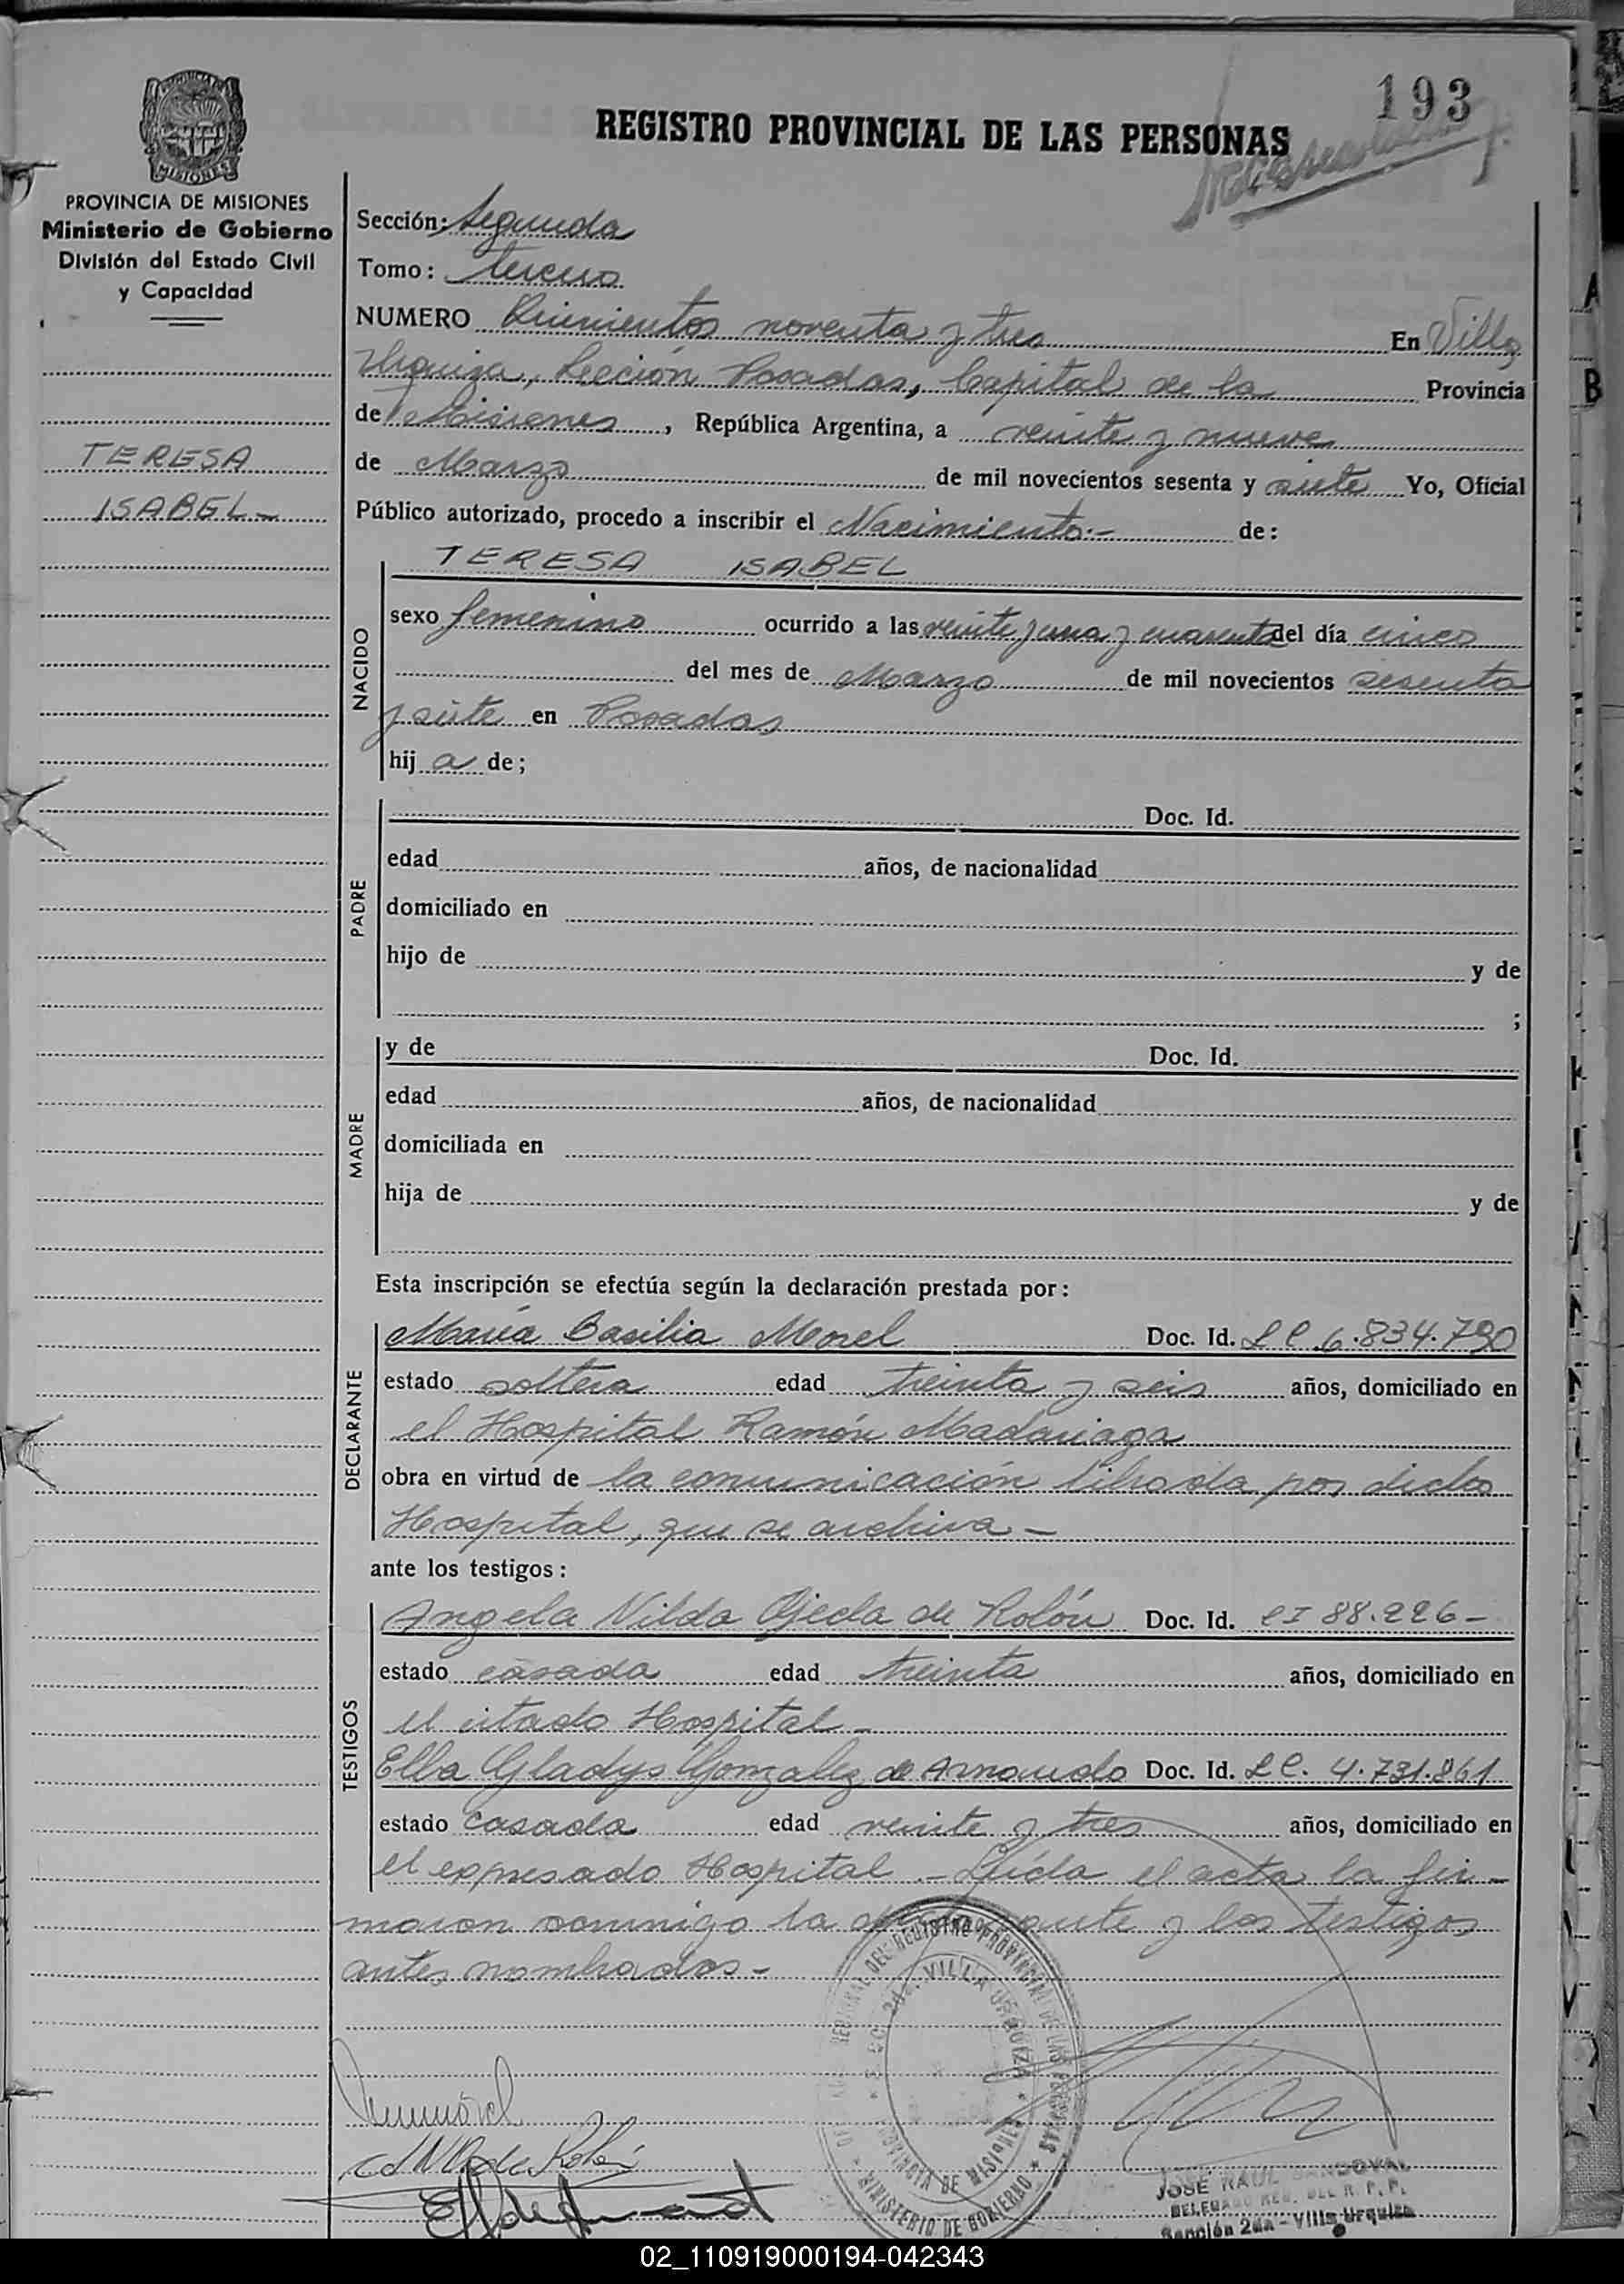 193
REGISTRO PROVINCIAL DE LAS PERSONAS
PROVINCIA DE MISIONES
MISIONES
PROVINCIA DE MISIONES
Ministerio de Gobierno
División del Estado Civil
y Capacidad
TERESA
ISABEL-
Sección: Segunda
Tomo: tercero
NUMERO Quinientos noventa y tres En Villa
Urquiza, Sección Posadas, Capital de la Provincia
de Misiones, República Argentina, a veinte y nueve
de Marzo de mil novecientos sesenta y siete Yo, Oficial
Público autorizado, procedo a inscribir el Nacimiento.- de:
TERESA ISABEL
NACIDO
sexo femenino ocurrido a las veinte y una y cuarenta del día cinco
del mes de Marzo de mil novecientos sesenta
y siete en Posadas
hij a de;
PADRE
Doc. Id.
edad años, de nacionalidad
domiciliado en
hijo de y de
;
MADRE
y de Doc. Id.
edad años, de nacionalidad
domiciliada en
hija de y de
Esta inscripción se efectúa según la declaración prestada por:
DECLARANTE
María Basilia Morel Doc. Id. LC 6.834.790
estado soltera edad treinta y seis años, domiciliado en
el Hospital Ramón Madariaga
obra en virtud de la comunicación librada por dicho
Hospital, que se archiva-
ante los testigos:
TESTIGOS
Angela Nilda Ojeda de Rolón Doc. Id. CI 88.226-
estado casada edad treinta años, domiciliado en
el citado Hospital-
Elba Gladys Gonzalez de Doc. Id. LC. 4.731.861
estado casada edad veinte y tres años, domiciliado en
el expresado Hospital.- Leída el acta la fir-
maron conmigo la y los testigos
antes nombrados-
REGISTRO PROVINCIAL DE LAS PERSONAS
VILLA URQUIZA
PROVINCIA DE MISIONES
MINISTERIO DE GOBIERNO
JOSE RAUL SANDOVAL
DELEGADO REG. DEL R. P. P.
Sección 2da - Villa Urquiza
02_110919000194-042343